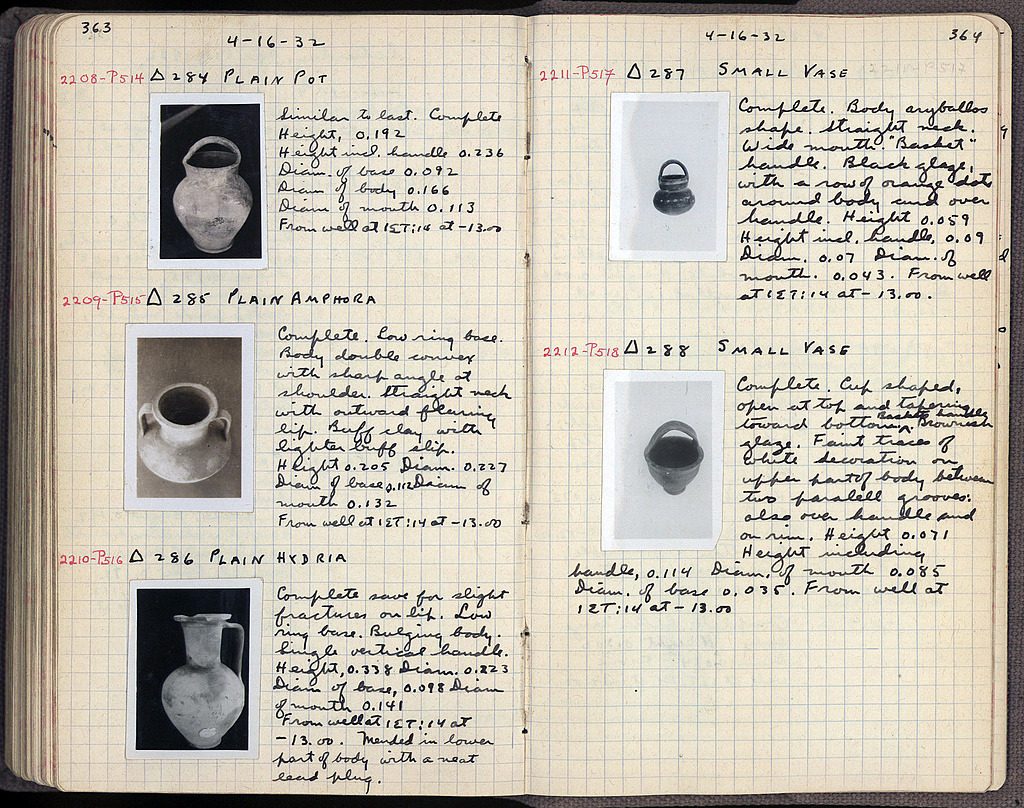 363
4-16-32
2208-P514 △ 284 PLAIN POT
Similar to last. Complete
Height, 0.192
Height incl. handle 0.236
Diam. of base 0.092
Diam of body 0.166
Diam of mouth 0.113
From well at 1ΣT:14 at -13.00
2209-P515 △ 285 PLAIN AMPHORA
Complete. Low ring base.
Body double convex
with sharp angle at
shoulder. Straight neck
with outward flaring
lip. Buff clay with
lighter buff slip.
Height 0.205 Diam. 0.227
Diam of base, 0.112 Diam of
mouth 0.132
From well at 1ΣT:14 at -13.00
2210-P516 △ 286 PLAIN HYDRIA
Complete save for slight
fractures on lip. Low
ring base. Bulging body.
Single vertical handle.
Height, 0.338 Diam. 0.223
Diam of base, 0.098 Diam
of mouth 0.141
From well at 1ΣT:14 at
-13.00. Mended in lower
part of body with a neat
lead plug.
4-16-32
364
2211-P517 △ 287 SMALL VASE
Complete. Body aryballos
shape. Straight neck.
Wide mouth. "Basket"
handle. Black glaze,
with a row of orange dots
around body and over
handle. Height 0.059
Height incl. handle, 0.09
Diam. 0.07 Diam. of
mouth. 0.043. From well
at 1ΣT:14 at -13.00.
2212-P518 △ 288 SMALL VASE
Complete. Cup shaped,
open at top and tapering
toward bottom. Basket handle. Brownish
glaze. Faint traces of
white decoration on
upper part of body between
two paralell grooves:
also over handle and
on rim. Height 0.071
Height including
handle, 0.114 Diam. of mouth 0.085
Diam. of base 0.035. From well at
1ΣT:14 at -13.00